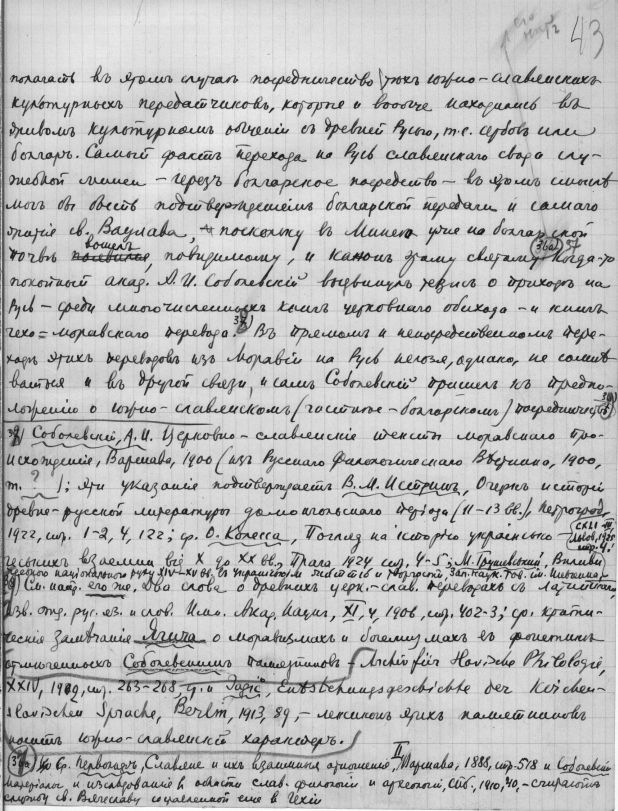 43
полагать въ этомъ случаѣ посредничество тѣхъ южно-славянскихъ
культурныхъ передатчиковъ, которые и вообще находились въ
живомъ культурномъ общеніи съ древней Русью, т.е. сербовъ или
болгаръ. Самый фактъ перехода на Русь славянскаго свода слу-
жебной минеи – черезъ болгарское посредство – въ этомъ смыслѣ
могъ бы быть подтвержденіемъ болгарской передачи и самаго
св. Вацлава, поскольку въ Минею уже на болгарской
почвѣ вошелъ, повидимому, и канонъ этому святому 36а) Когда-то
покойный акад. А.И. Соболевскій выдвинулъ тезисъ о приходѣ на
Русь – среди многочисленныхъ книгъ церковнаго обихода – и книгъ
чехо-моравскаго перевода. Въ прямомъ и непосредственномъ пере-
ходѣ этихъ переводовъ изъ Моравіи на Русь нельзя, однако, не сомнѣ-
ваться и въ другой связи, и самъ Соболевскій пришелъ къ предпо-
ложенію о южно-славянскомъ (частнѣе – болгарскомъ) посредничествѣ
Соболевскій, А.И. Церковно-славянскіе тексты моравскаго про-
исхожденія, Варшава, 1900 (изъ Русскаго Филологическаго Вѣстника, 1900,
т. ?); эти указанія подтверждаетъ В.М. Истринъ, Очеркъ исторіи
древне-русской литературы домонгольскаго періода (11-13 вв.), Петроградъ,
1922, стр. 1-2, 4, 122; ср. О. Колесса, Погляд на історію українсько-
CXLI-III, Львов, 1925
стр. 4.
чеських взаємин від X до XX вв., Прага 1924 стр. 4-5; М. Грушевський, Впливи
чеського національного руху XIV-XV вв. в українськім життю и творчости, Зап. Наук. Тов. ім. Шевченка
См. напр. его же, Два слова о древнихъ церк.-слав. переводахъ съ латинскаго,
Изв. отд. рус. яз. и слов. Имп. Акад. Наукъ, XI, 4, 1906, стр. 402-3; ср. крити-
ческія замѣчанія Ягича о моравизмахъ и богемизмахъ въ фонетикѣ
Соболевскимъ памятниковъ – Archiv für slavische Philologie,
XXIV, 1902, стр. 263-268, ср. и Jagić, Entstehungsgeschichte der Kirchen-
slavischen Sprache, Berlin, 1913, 89, – лексиконъ этихъ памятниковъ
носитъ южно-славянскій характеръ.
Ср. Первольфъ, Славяне и ихъ взаимныя отношенія, II, Варшава, 1888, стр. 518 и Соболевскій
Матеріалы и изслѣдованія въ области слав. филологіи и археологіи, СПб., 1910, 40, – считаютъ
службу св. Вячеславу составленной еще в Чехіи